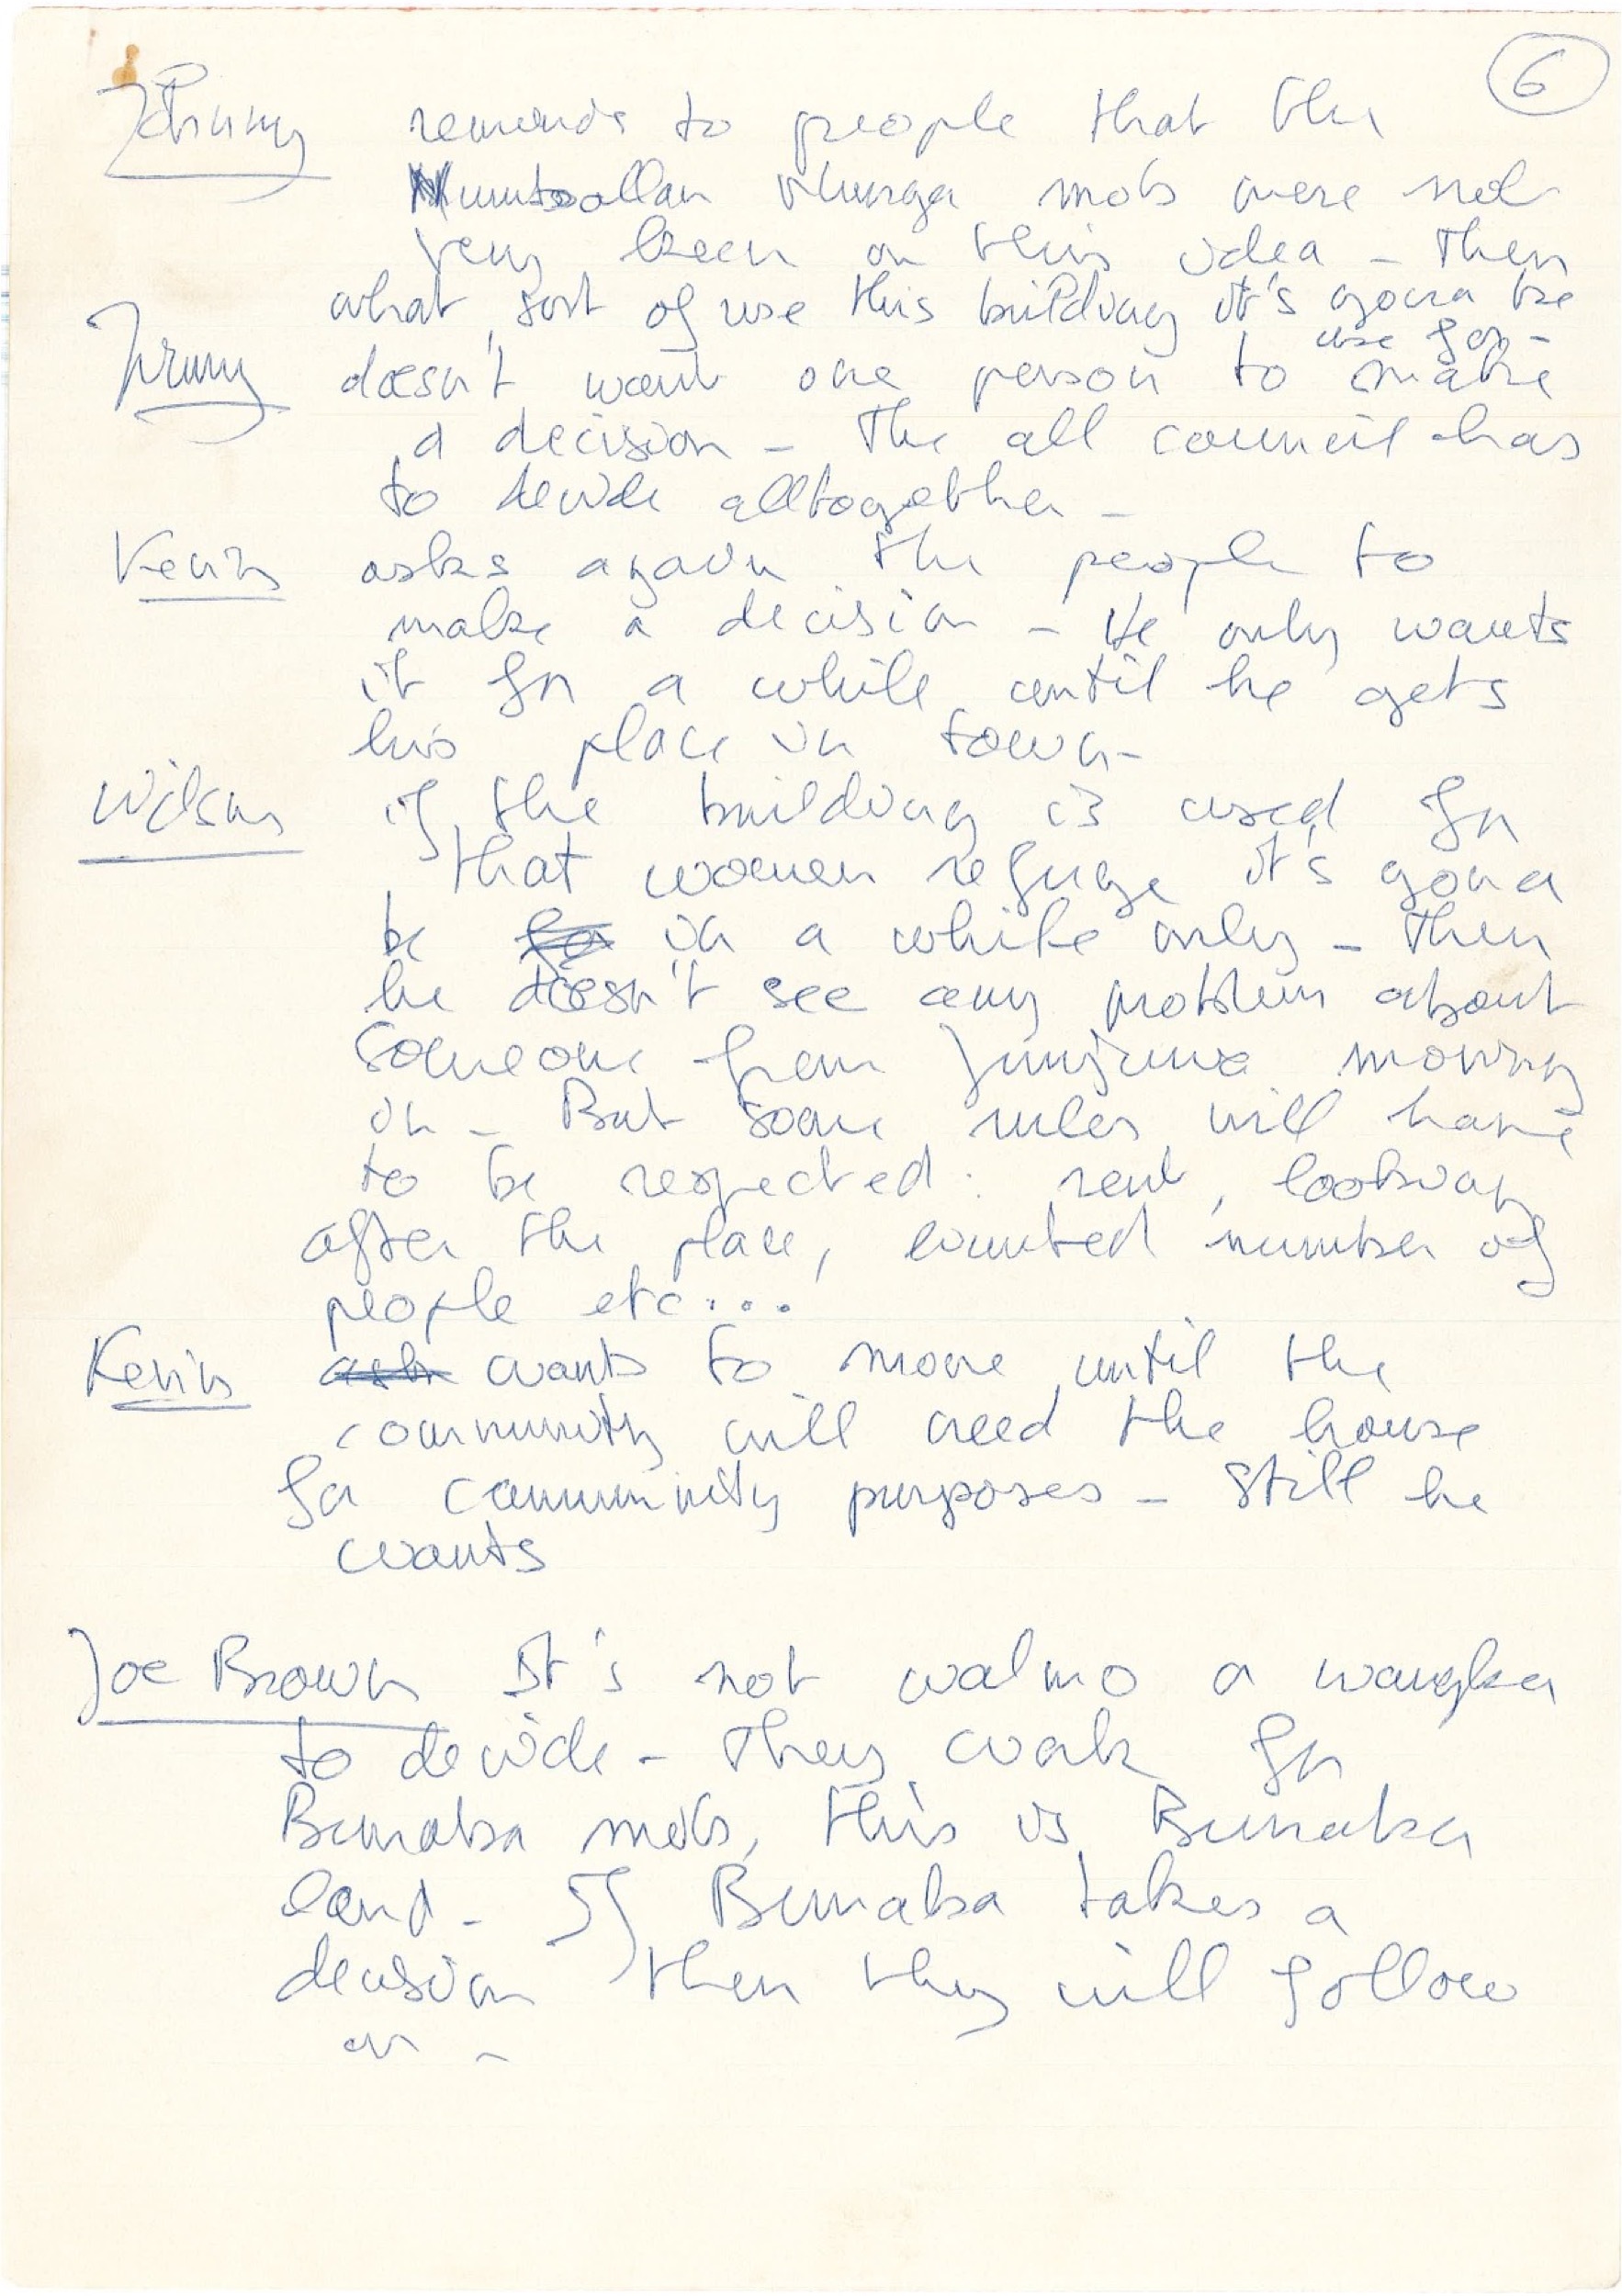 6
Johnny reminds to people that the
mob were not
very keen on this idea - Then
what sort of use this building it's gonna be
use for -
Jimmy doesn't want one person to make
a decision - The all council has
to decide alltogether -
Kevin asks again the people to
make a decision - He only wants
it for a while until he gets
his place in town -
Wilson if the building is used for
that women refuge it's gona
be in a while only - Then
he doesn't see any problem about
someone from Junjuwa moving
in - But some rules will have
to be respected : rent, looking
after the place, counted number of
people etc...
Kevin wants to move until the
community will need the house
for community purposes - Still he
wants
Joe Brown It's not walmo a wangka
to decide - They work for
Bunaba mob, this is Bunaba
land - If Bunaba takes a
decision then they will follow
on -